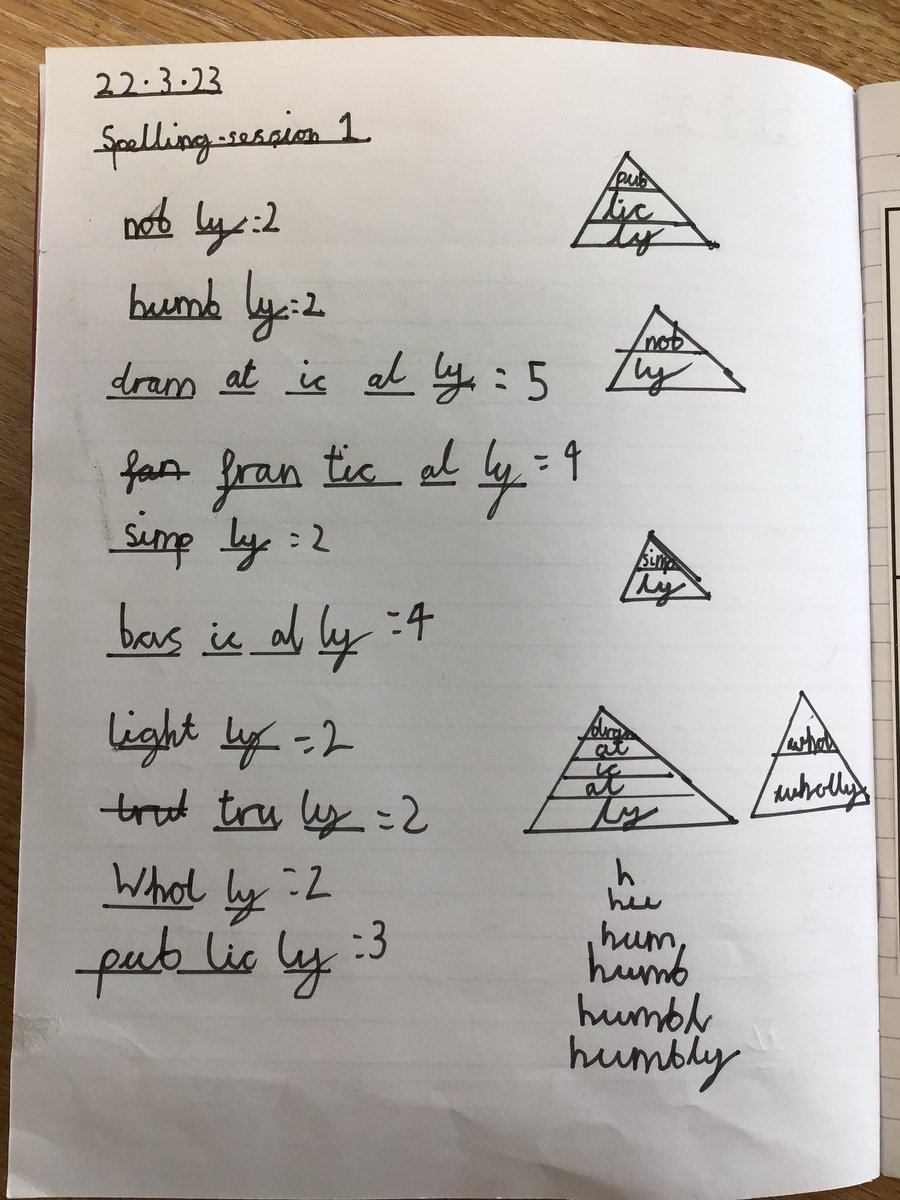 22.3.23
Spelling-session 1
not ly=2
humb ly=2
dram at ic al ly = 5
fan fran tic al ly = 4
simp ly = 2
bas ic al ly = 4
light ly = 2
trul tru ly = 2
Whol ly = 2
pub lic ly = 3
pub
lic
ly
not
ly
simp
ly
dram
at
ic
at
ly
whol
wholly
h
hu
hum
humb
humbl
humbly